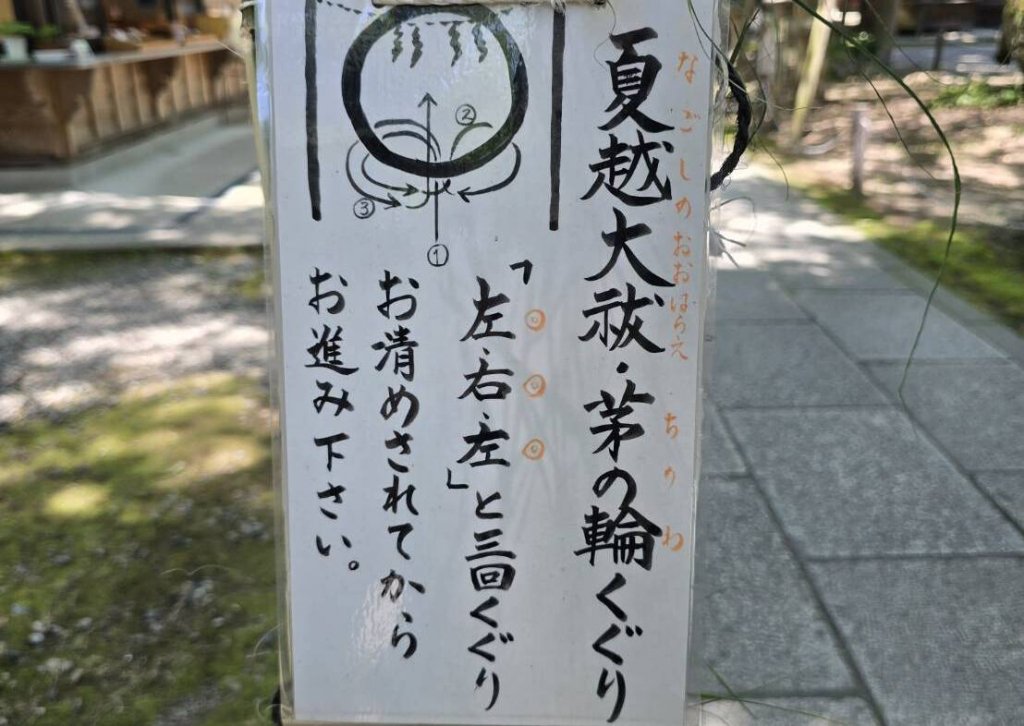 夏越大祓・茅の輪くぐり
なごしのおおばらえ・ちのわ
「左・右・左」と三回くぐり
◎◎◎
お清めされてから
お進み下さい。
①
②
③